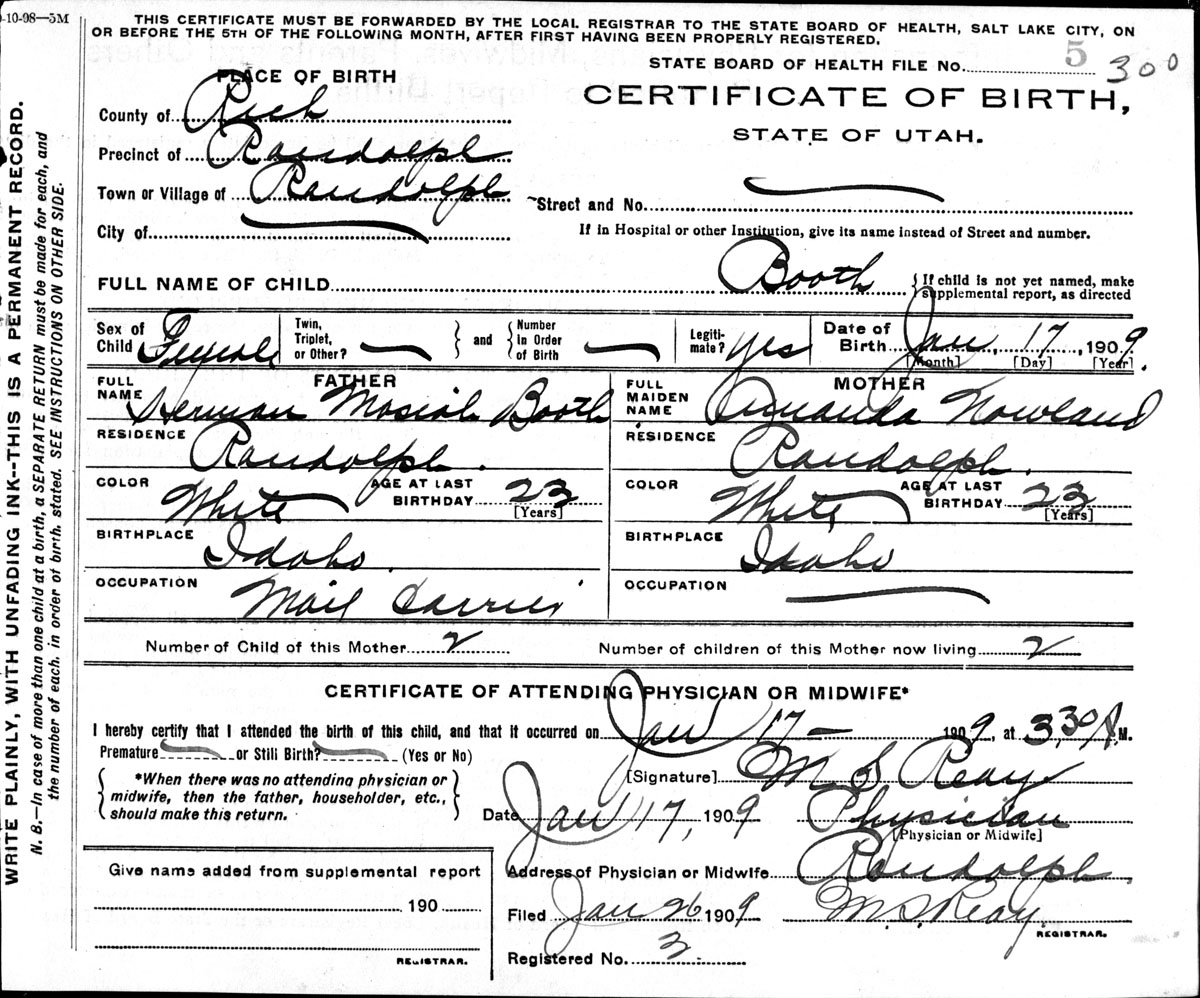 -10-08—5M
THIS CERTIFICATE MUST BE FORWARDED BY THE LOCAL REGISTRAR TO THE STATE BOARD OF HEALTH, SALT LAKE CITY, ON
OR BEFORE THE 5TH OF THE FOLLOWING MONTH, AFTER FIRST HAVING BEEN PROPERLY REGISTERED.
STATE BOARD OF HEALTH FILE No. 5 300
PLACE OF BIRTH
CERTIFICATE OF BIRTH,
STATE OF UTAH.
County of Rich
Precinct of Randolph
Town or Village of Randolph
City of
Street and No.
If in Hospital or other Institution, give its name instead of Street and number.
FULL NAME OF CHILD Booth { If child is not yet named, make
supplemental report, as directed
Sex of Child Female
Twin, Triplet, or Other? — } and { Number In Order of Birth —
Legiti-mate? yes
Date of Birth Jan, 17, 1909.
[Month] [Day] [Year]
FATHER
FULL NAME Herman Mosiah Booth
RESIDENCE Randolph.
COLOR White AGE AT LAST BIRTHDAY 23
[Years]
BIRTHPLACE Idaho.
OCCUPATION Mail Carrier
MOTHER
FULL MAIDEN NAME Amanda Nowland
RESIDENCE Randolph.
COLOR White AGE AT LAST BIRTHDAY 23
[Years]
BIRTHPLACE Idaho
OCCUPATION
Number of Child of this Mother 2 Number of children of this Mother now living 2
CERTIFICATE OF ATTENDING PHYSICIAN OR MIDWIFE*
I hereby certify that I attended the birth of this child, and that it occurred on Jan 17 — 1909, at 3,30 A.M.
Premature — or Still Birth? — (Yes or No)
{ *When there was no attending physician or
midwife, then the father, householder, etc.,
should make this return. }
[Signature] M S Reay
Date Jan 17, 1909 Physician
[Physician or Midwife]
Address of Physician or Midwife Randolph.
Filed Jan 26 1909 M S Reay.
REGISTRAR.
Registered No. 3
Give name added from supplemental report
190
REGISTRAR.
WRITE PLAINLY, WITH UNFADING INK--THIS IS A PERMANENT RECORD.
N. B.—In case of more than one child at a birth, a SEPARATE RETURN must be made for each, and
the number of each, in order of birth, stated. SEE INSTRUCTIONS ON OTHER SIDE.